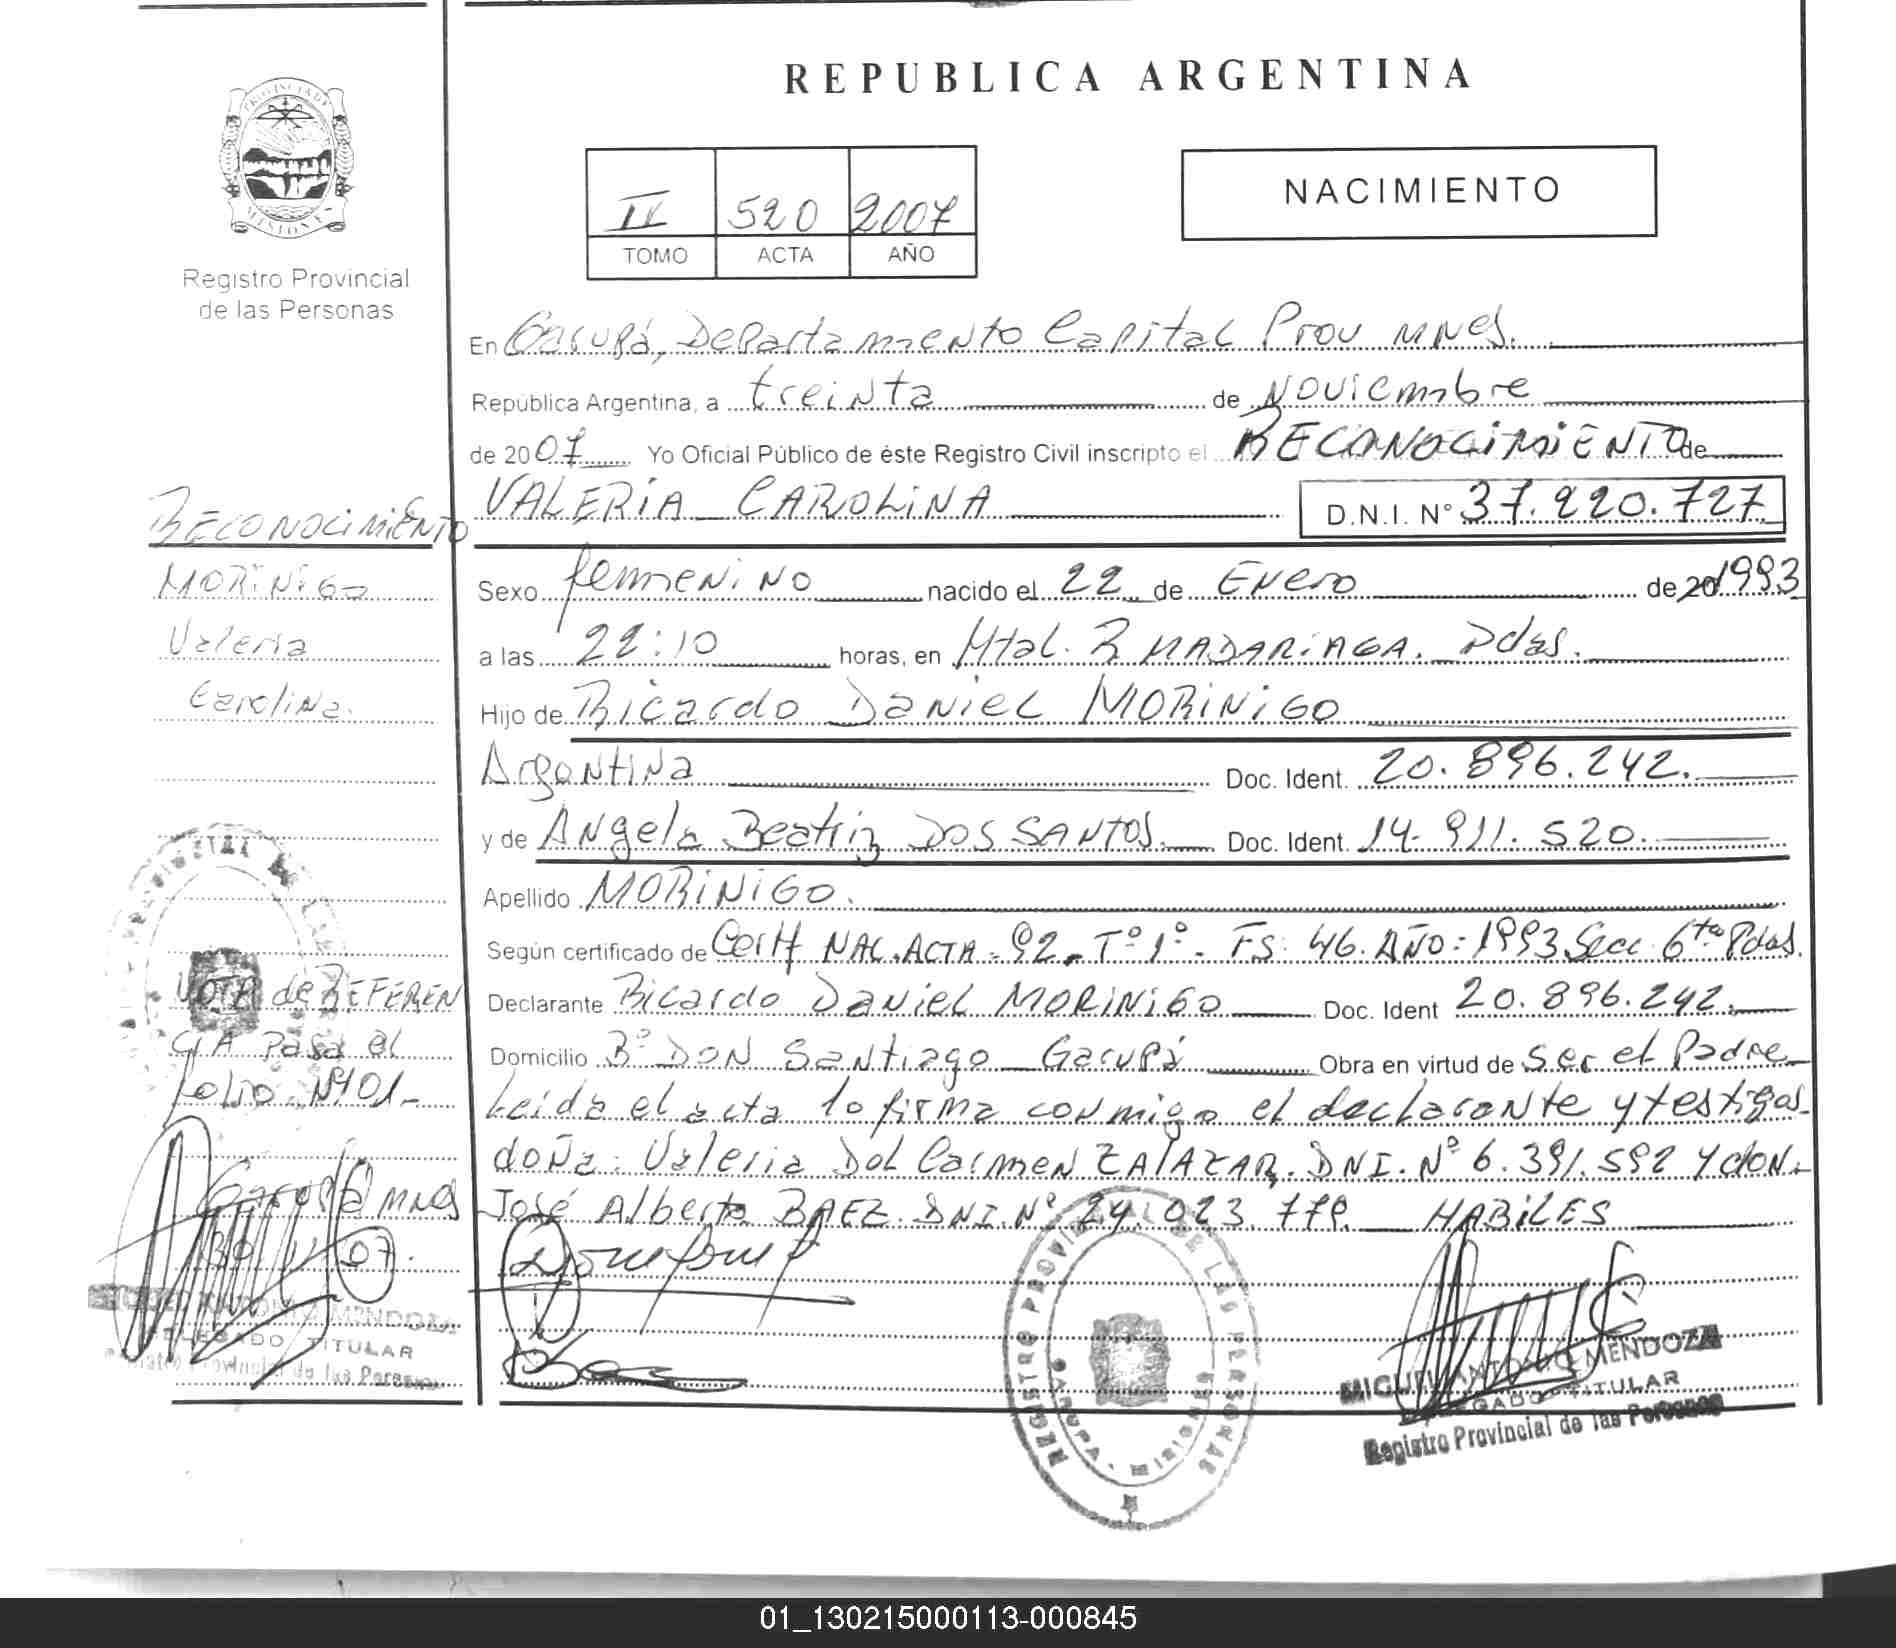 REPUBLICA ARGENTINA
PROVINCIA DE
MISIONES
Registro Provincial
de las Personas
II 520 2007
TOMO ACTA AÑO
NACIMIENTO
En Garupá, Departamento Capital Prov MNES.
República Argentina, a treinta de Noviembre
de 2007 Yo Oficial Público de éste Registro Civil inscripto el RECONOCIMIENTO de
VALERIA CAROLINA D.N.I. N° 37.220.727
Sexo femenino nacido el 22 de Enero de 20 1993
a las 22:10 horas, en Htal. R MADARIAGA. Pdas.
Hijo de Ricardo Daniel MORINIGO
Argentina Doc. Ident. 20.896.242.
y de Angela Beatriz DOS SANTOS. Doc. Ident. 14.911.520.
Apellido MORINIGO.
Según certificado de Certf NAC. ACTA: 92. T° 1° Fs: 46. AÑO: 1993 Secc 6ta Pdas.
Declarante Ricardo Daniel MORINIGO Doc. Ident 20.896.242.
Domicilio B° DON Santiago Garupá Obra en virtud de Ser el Padre
Leida el acta lo firma conmigo el declarante y testigos
doña: Valeria Del Carmen ZALAZAR. DNI. N° 6.391.592 y don.
José Alberto BAEZ. DNI. N° 24.023.778 HABILES
RECONOCIMIENTO
MORINIGO
Valeria
Carolina.
NOTA de REFEREN
CIA Pasa al
folio N°101-
Garupá MNES
30 11 07.
MENDOZA
DELEGADO TITULAR
Registro Provincial de las Personas
REGISTRO PROVINCIAL DE LAS PERSONAS
GARUPA - MISIONES
MIGUEL ANTONIO MENDOZA
DELEGADO TITULAR
Registro Provincial de las Personas
01_130215000113-000845